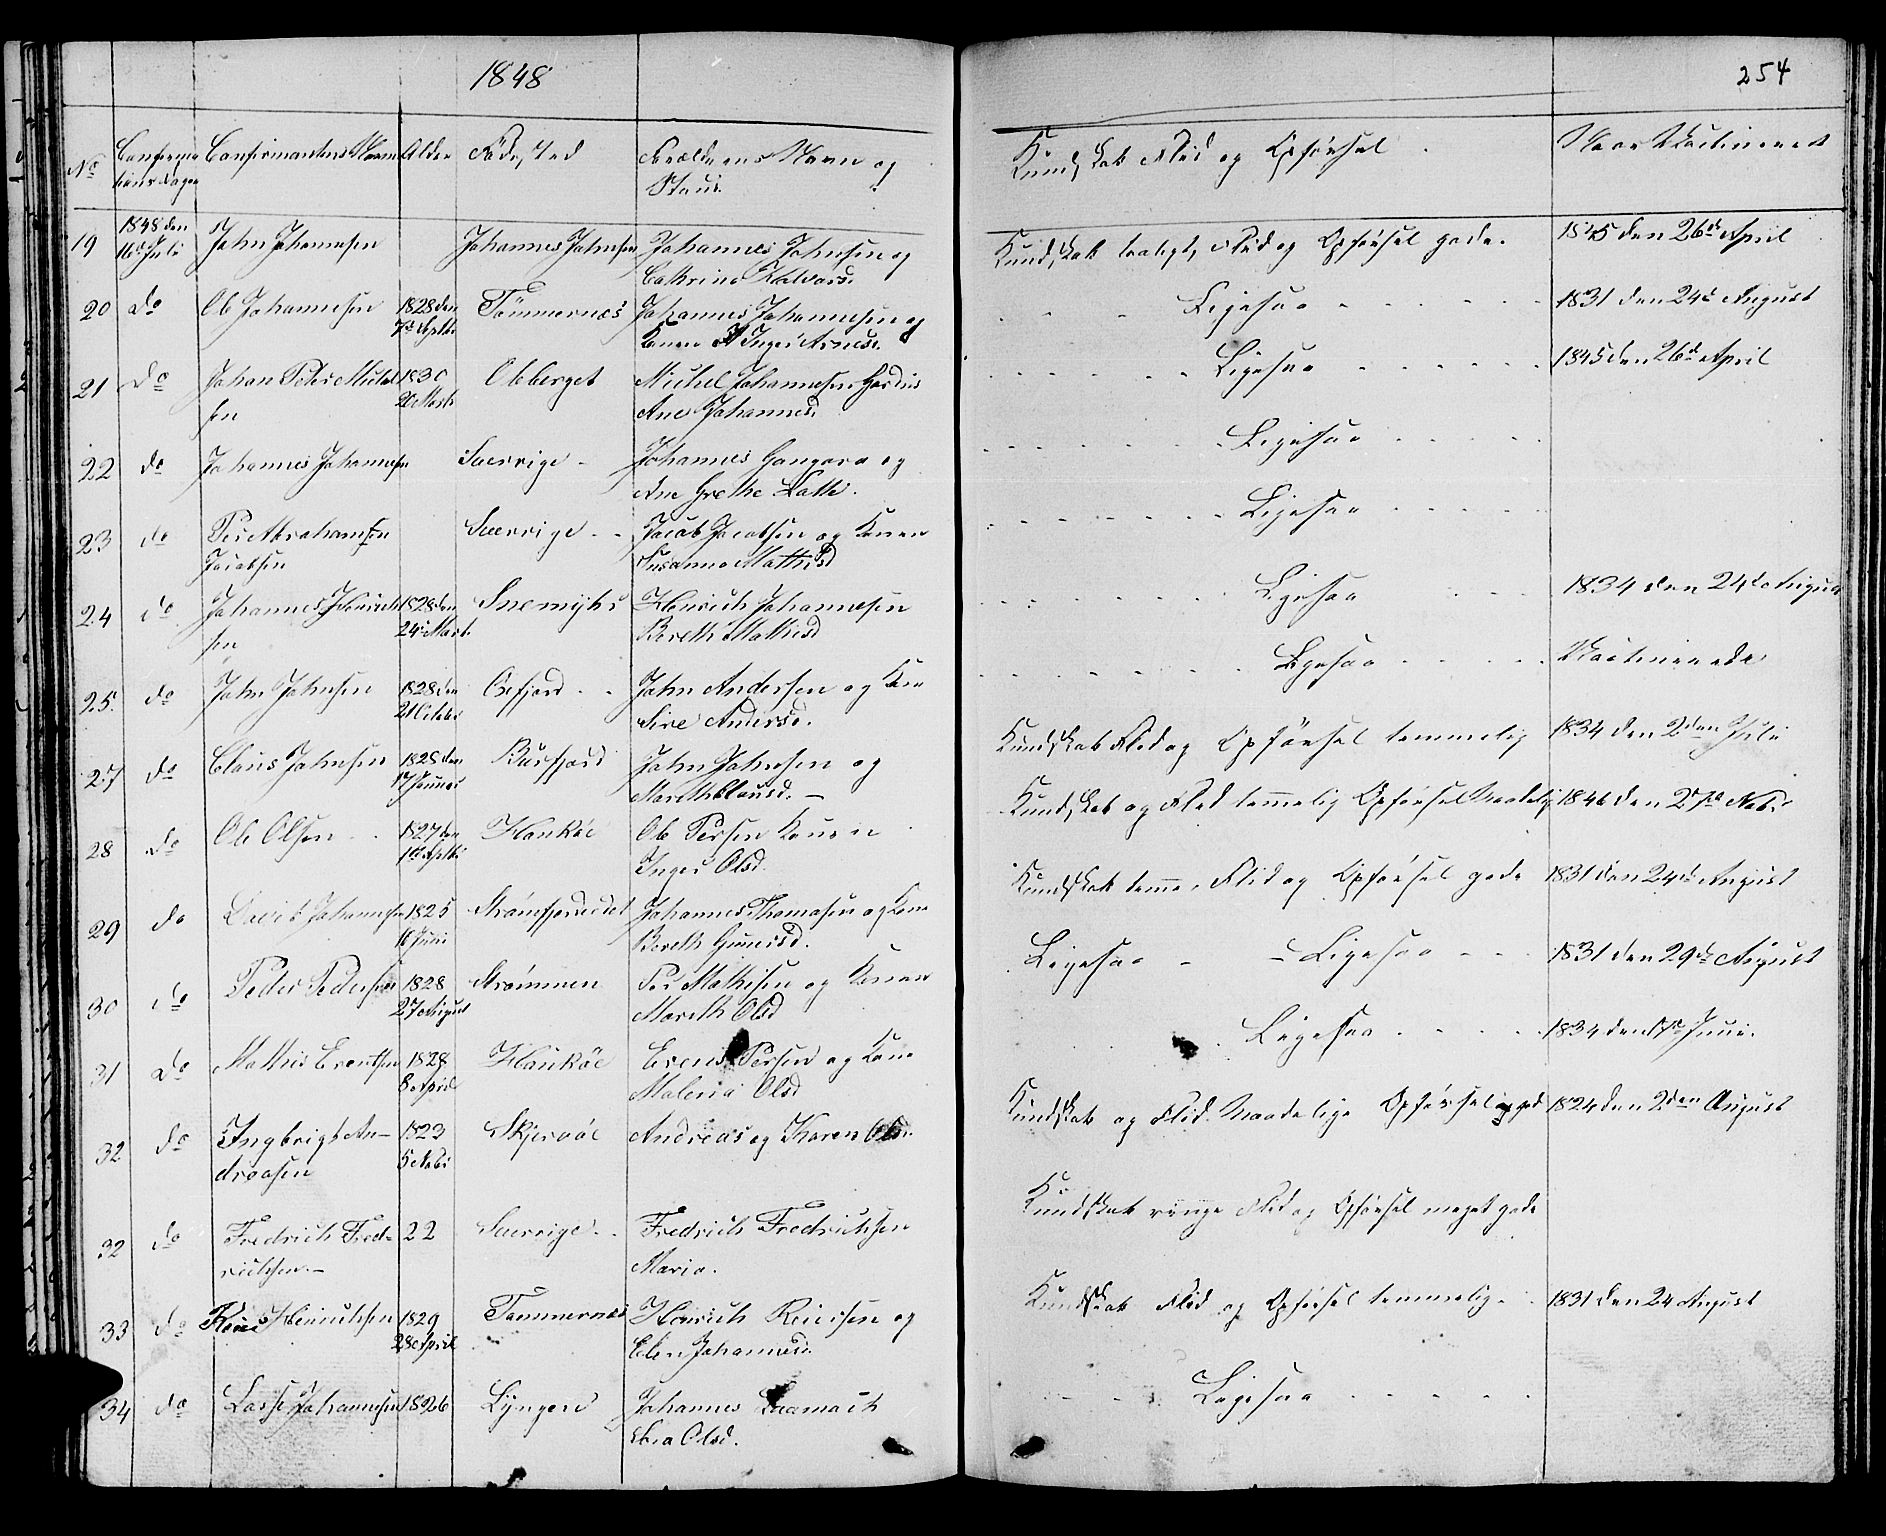 1848
254
No Confirma Confirmantens Navn Alder Föde,Sted Forældrens Navn og Kundskab Flid og Opförsel Naar Vactineret
tions dagen Stand
19 1848 den 16de Juli John Johannesen Johannes Johnsen Johannes Johnsen og Kundskab maadelig, Flid og Opförsel gode. 1845 den 26de April
Cathrine
20 do Ole Johannesen 1828 den Tömmernæs Johannes Johannesen og Ligesaa 1831 den 24de August
7de Septbr Konen Inger Arnesd.
21 do Johan Peter Michel 1830 Oleberget Michel Johannesen Ligesaa 1845 den 26de April
sen 20 Marts Ane Johannesd
22 do Johannes Johannesen Sverrige Johannes Gangara og Ligesaa
Ane Grethe Latte.
23 do Per Abrahamsen Sverrige Jacob Jacobsen og Konen Ligesaa
Jacobsen Susanna Mathisd
24 do Johannes Henrich 1828 den Henrich Johannesen Ligesaa 1834 den 24de August
sen 24de Marts Bereth Mathisd
25. do John Johnsen 1828 den Oxefjord John Andersen og Kone Ligesaa Vactinerede
21 October Sire Andersd.
27 do Claus Johnsen 1828 den Burfjord John Johnsen og Kundskab Flid og Opförsel temmelig 1834 den 2den Juli
17 Januar Marith Clausd.
28 do Ole Olsen 1827 den Haukøe Ole Persen Konen Kundskab og Flid temmelig Opförsel Maadelig 1846 den 27de Novbr
1de Septbr Inger Olsd.
29 do David Johannesen 1825 Strömfjordeidet Johannes Thomasen og Kone Kundskab temme. Flid og Opförsel gode 1831 den 24de August
16 Juni Bereth Gunersd.
30 do Peder Pedersen 1828 Strömmen Per Mathisen og Konen Ligesaa - Ligesaa 1831 den 29de August
27 August Mareth Olsd
31 do Mathis Erentsen 1828 Haukøe Erens Persen og Kone Ligesaa 1834 den 17de Juni.
8 April Malena Olsd
32 do Ingbrigt An- 1823 Skjervöe Andreas og Karen Ols. Kundskab og Flid Maadelige Opförsel god 1824 den 2den August
dreasen 5 Novbr
32 do Fredrich Fred- 22 Sverrige Fredrich Fredrichsen Kundskab ringe Flid og Opförsel meget gode
richsen. Maria.
33 do Reier Heinrichsen 1829 Tommernæs Henrich Reiersen og Kundskab Flid og Opförsel temmelig 1831 den 24 August
28 April Elen Johannesd.
34 do Lasse Johannesen 1826 Lyngen Johannes Ligesaa
Olsd.